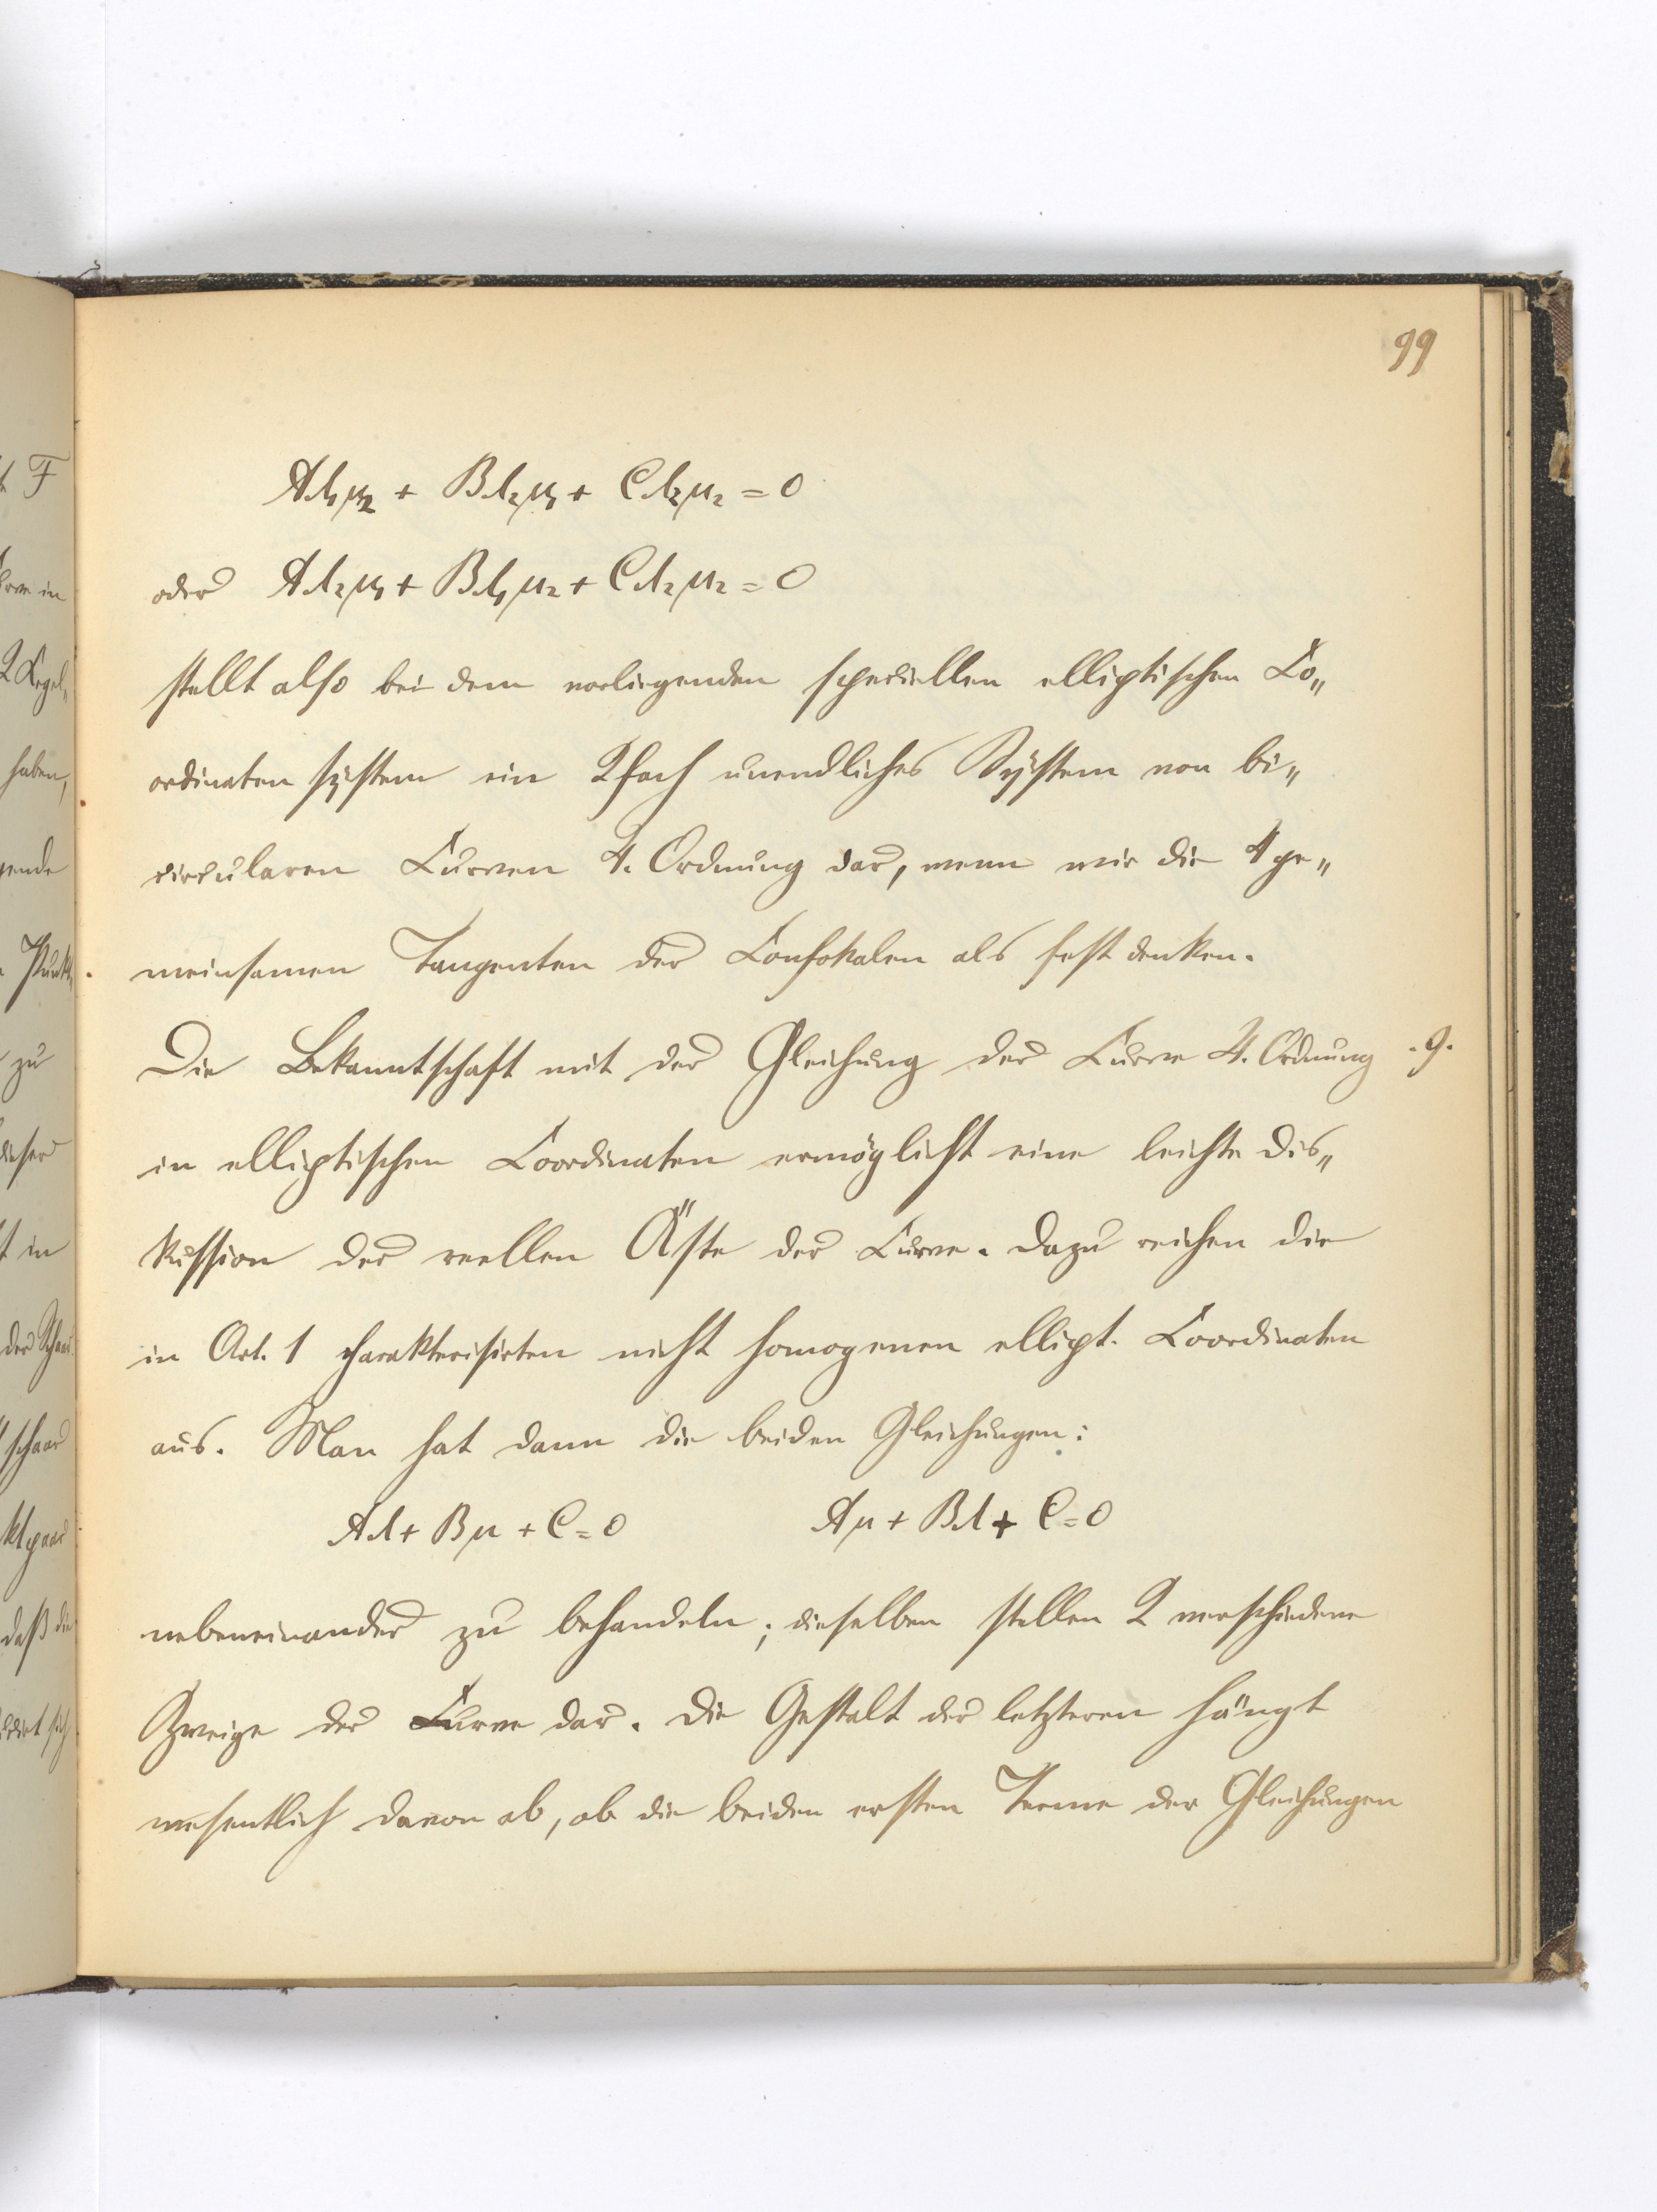 99
Aλ₁μ₂ + Bλ₂μ₁ + Cλ₂μ₂ = 0
oder Aλ₂μ₁ + Bλ₁μ₂ + Cλ₂μ₂ = 0
stellt also bei dem vorliegenden speciellen elliptischen Co„
ordinatensystem ein 2fach unendliches System von bi„
circularen Curven 4. Ordnung dar, wenn wir die 4 ge„
meinsamen Tangenten der Confokalen als fest denken.
Die Bekanntschaft mit der Gleichung der Curve 4. Ordnung .9.
in elliptischen Coordinaten ermöglicht eine leichte Dis„
kussion der reellen Äste der Curve. Dazu reichen die
in Art. 1 charakterisirten nicht homogenen ellipt. Coordinaten
aus. Man hat dann die beiden Gleichungen:
Aλ + Bμ + C = 0 Aμ + Bλ + C = 0
nebeneinander zu behandeln; dieselben stellen 2 verschiedene
Zweige der Curve dar. Die Gestalt der letzteren hängt
wesentlich davon ab, ob die beiden ersten Terme der Gleichungen
F
in
2 Kegel„
haben,
Punkt„
zu
dieser
in
der Schaar
schaar
daß die
sich